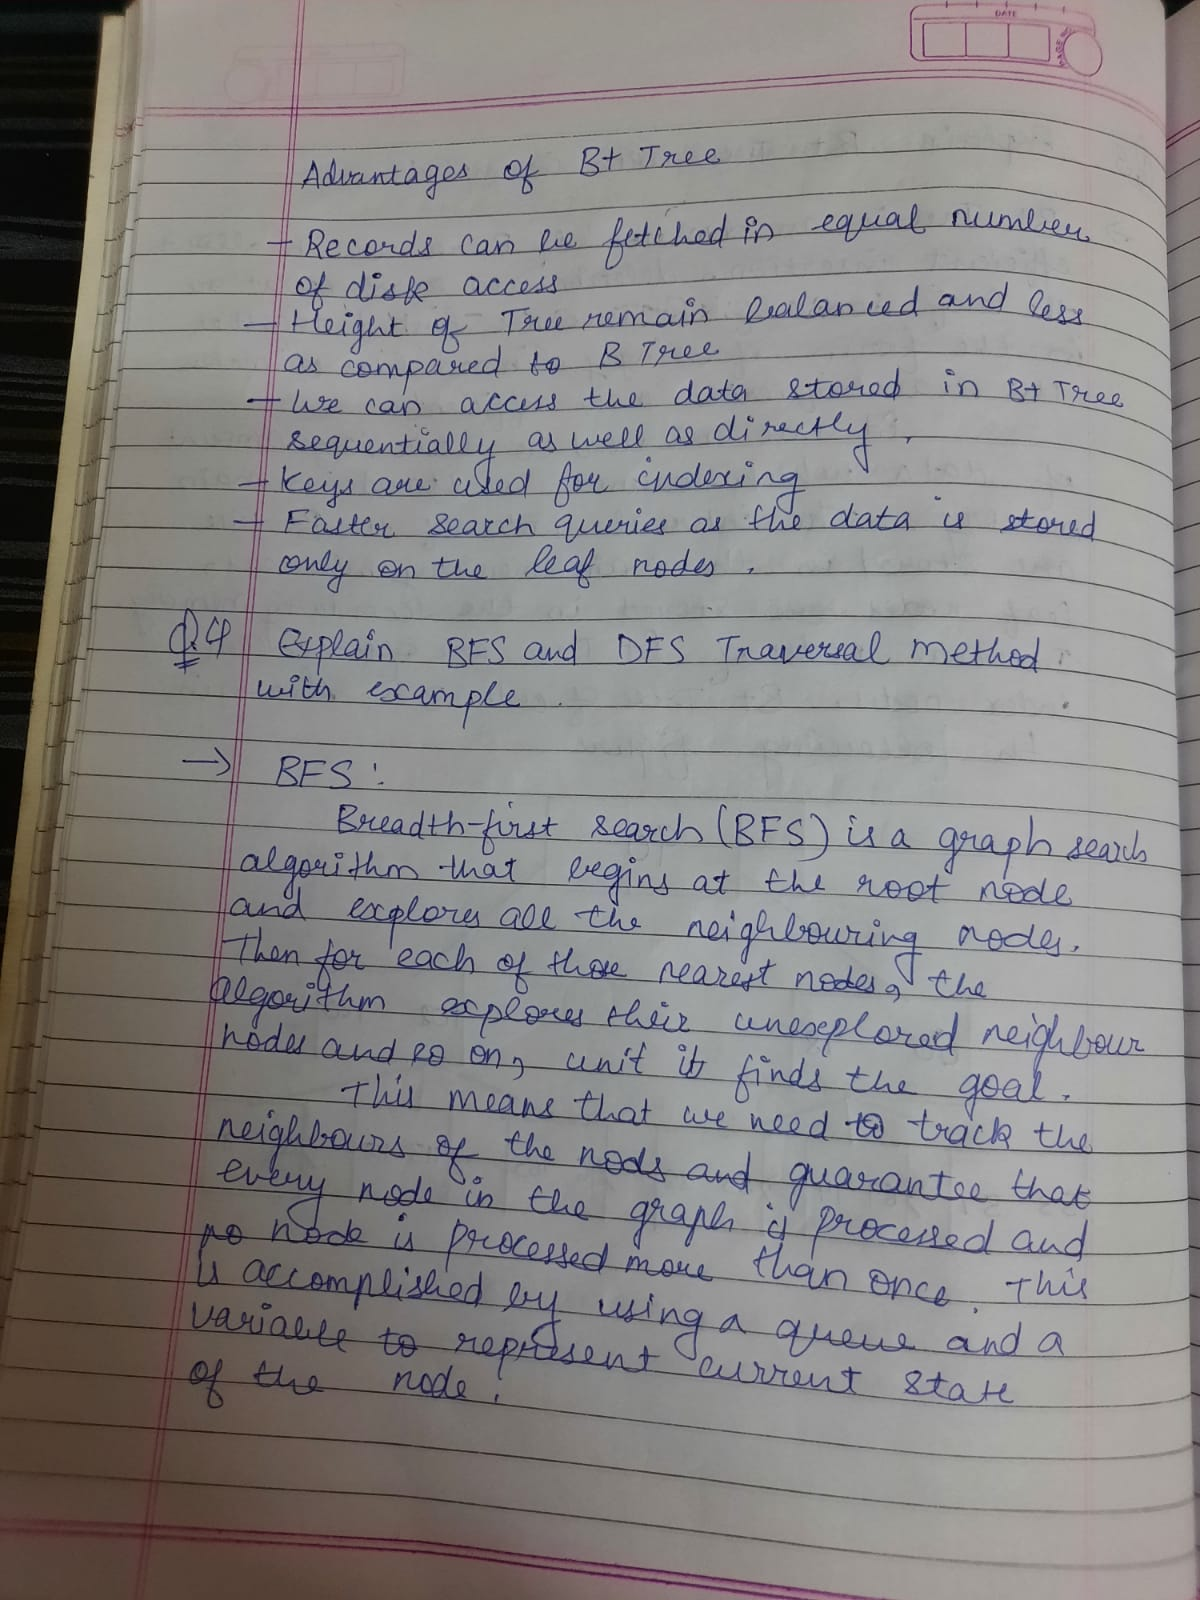 DATE
PAGE NO.
Advantages of B+ Tree
- Records can be fetched in equal number
of disk access
- Height of Tree remain balanced and less
as compared to B Tree
- We can access the data stored in B+ Tree
sequentially as well as directly.
- Keys are used for indexing
- Faster search queries as the data is stored
only on the leaf nodes.
Q.4 Explain BFS and DFS Traversal method
with example.
→ BFS:
Breadth-first search (BFS) is a graph search
algorithm that begins at the root node
and explores all the neighbouring nodes.
Then for each of those nearest nodes, the
algorithm explores their unexplored neighbour
nodes and so on, unit it finds the goal.
This means that we need to track the
neighbours of the nods and guarantee that
every node in the graph is processed and
no node is processed more than once. This
is accomplished by using a queue and a
variable to represent current state
of the node.